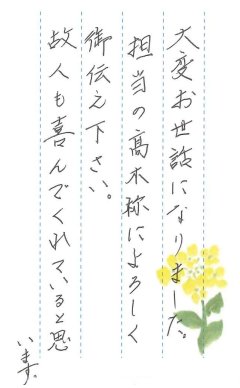 大変お世話になりました。
担当の髙木称によろしく
御伝え下さい。
故人も喜んでくれていると思
います。